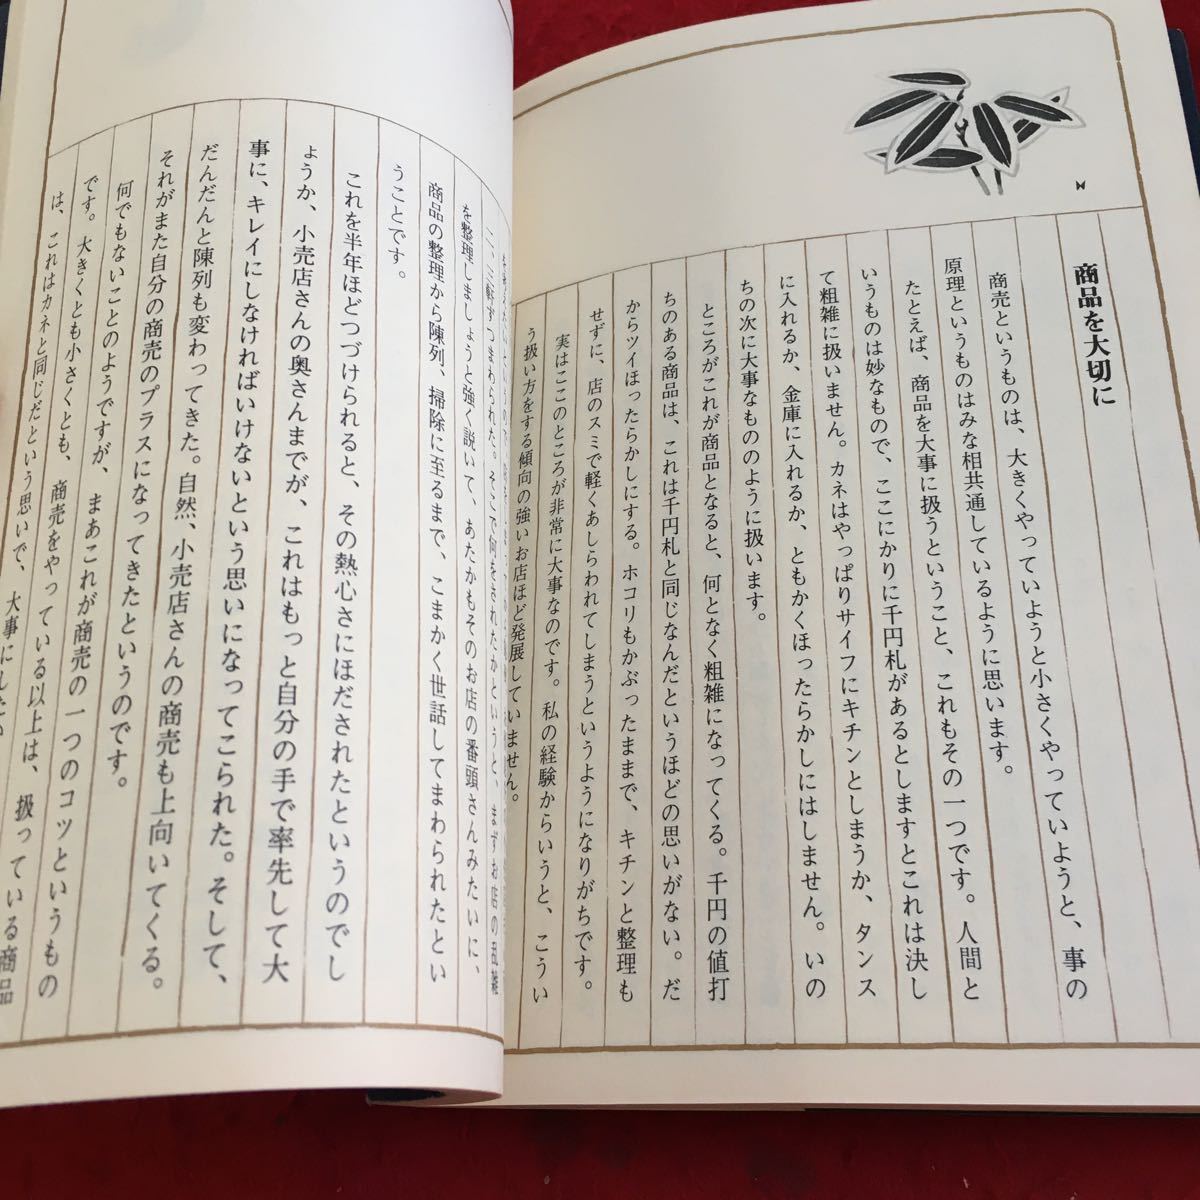 商品を大切に
商売というものは、大きくやっていようと小さくやっていようと、事の
原理というものはみな相共通しているように思います。
たとえば、商品を大事に扱うということ、これもその一つです。人間と
いうものは妙なもので、ここにかりに千円札があるとしますとこれは決し
て粗雑に扱いません。カネはやっぱりサイフにキチンとしまうか、タンス
に入れるか、金庫に入れるか、ともかくほったらかしにはしません。いの
ちの次に大事なもののように扱います。
ところがこれが商品となると、何となく粗雑になってくる。千円の値打
ちのある商品は、これは千円札と同じなんだというほどの思いがない。だ
からツイほったらかしにする。ホコリもかぶったままで、キチンと整理も
せずに、店のスミで軽くあしらわれてしまうというようになりがちです。
実はここのところが非常に大事なのです。私の経験からいうと、こうい
う扱い方をする傾向の強いお店ほど発展していません。
二、三軒ずつまわられた。そこで何をされたかというと、まずお店の乱雑
を整理しましょうと強く説いて、あたかもそのお店の番頭さんみたいに、
商品の整理から陳列、掃除に至るまで、こまかく世話してまわられたとい
うことです。
これを半年ほどつづけられると、その熱心さにほだされたというのでし
ょうか、小売店さんの奥さんまでが、これはもっと自分の手で率先して大
事に、キレイにしなければいけないという思いになってこられた。そして、
だんだんと陳列も変わってきた。自然、小売店さんの商売も上向いてくる。
それがまた自分の商売のプラスになってきたというのです。
何でもないことのようですが、まあこれが商売の一つのコツというもの
です。大きくとも小さくとも、商売をやっている以上は、扱っている商品
は、これはカネと同じだという思いで、大事にしたい